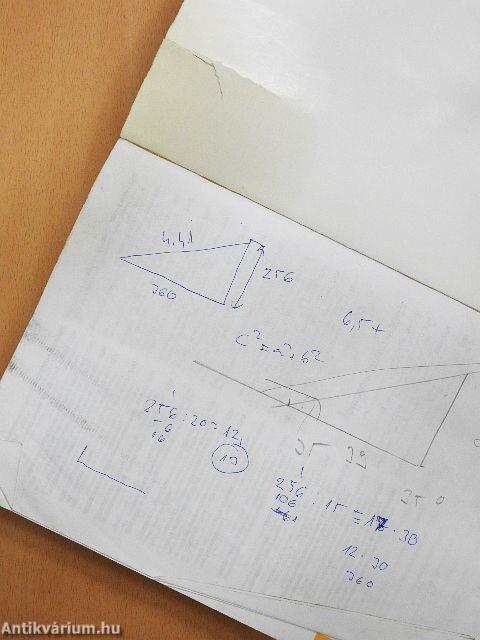 4,41
256
360
6,5+
c²=a²+b²
256:20=12,
56
16
13
35 39
35°
256:15=17·30
106
12·30
360
Antikvárium.hu